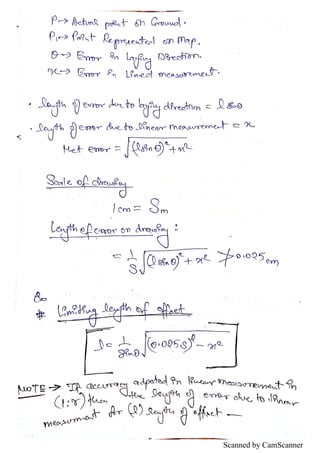 P → Actual point on Ground.
P₁ → Point Represented on Map.
θ → Error in laying Direction.
x → Error in Lined measurement.
• length of error due to laying direction = l sinθ
• length of error due to linear measurement = x
Net error = √((l sinθ)² + x²)
Scale of drawing
1cm = Sm
Length of error on drawing :
= 1/S √((l sinθ)² + x²) ≯ 0.025 cm
So
# Limiting length of offset
l = 1/sinθ √((0.025S)² - x²)
NOTE → If accuracy adpoted in linear measurement in
(1:r) then the length of error due to linear
measurment for (l) length of offset —
Scanned by CamScanner